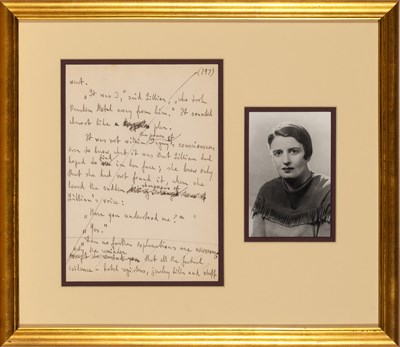 (197)
went.
"It was I," said Lillian, "who took
Rearden Metal away from him." It sounded
almost like a plea.
the power of
It was not within Dagny's consciousness
ever to know what it was that Lillian had
hoped to find in her face; she knew only
that she had not found it, when she
heard the sudden
Lillian's voice:
"Have you understood me?"
"Yes."
"Then no further explanations are necessary
that all the factual
evidence – hotel registers, jewelry bills and stuff